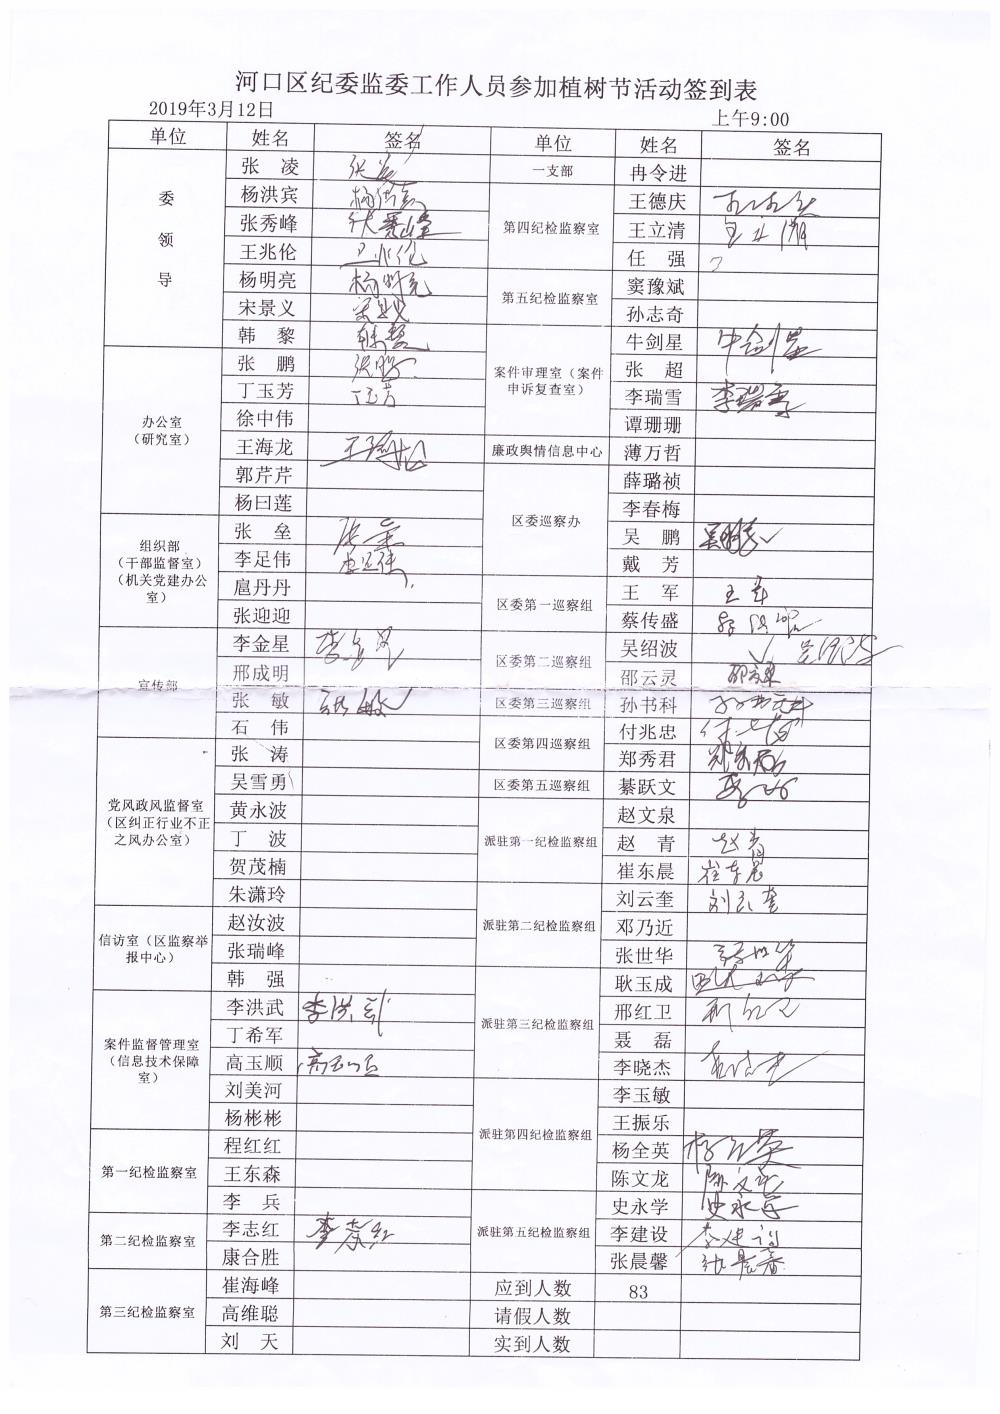 河口区纪委监委工作人员参加植树节活动签到表
2019年3月12日 上午9:00
单位 姓名 签名 单位 姓名 签名
委领导
张 凌 张凌
杨洪宾 杨洪宾
张秀峰 张秀峰
王兆伦 王兆伦
杨明亮 杨明亮
宋景义 宋景义
韩 黎 韩黎
办公室
（研究室）
张 鹏 张鹏
丁玉芳 丁玉芳
徐中伟
王海龙 王海龙
郭芹芹
杨曰莲
组织部
（干部监督室）
（机关党建办公
室）
张 垒 张垒
李足伟 李足伟
扈丹丹
张迎迎
宣传部
李金星 李金星
邢成明
张 敏 张敏
石 伟
党风政风监督室
（区纠正行业不正
之风办公室）
张 涛
吴雪勇
黄永波
丁 波
贺茂楠
朱潇玲
信访室（区监察举
报中心）
赵汝波
张瑞峰
韩 强
案件监督管理室
（信息技术保障
室）
李洪武 李洪武
丁希军
高玉顺 高玉顺
刘美河
杨彬彬
第一纪检监察室
程红红
王东森
李 兵
第二纪检监察室
李志红 李志红
康合胜
第三纪检监察室
崔海峰
高维聪
刘 天
一支部
冉令进
第四纪检监察室
王德庆
王立清 王立清
任 强
第五纪检监察室
窦豫斌
孙志奇
案件审理室（案件
申诉复查室）
牛剑星 牛剑星
张 超
李瑞雪 李瑞雪
谭珊珊
廉政舆情信息中心
薄万哲
区委巡察办
薛璐祯
李春梅
吴 鹏 吴鹏
戴 芳
区委第一巡察组
王 军 王军
蔡传盛
区委第二巡察组
吴绍波 吴绍波
邵云灵 邵云灵
区委第三巡察组
孙书科 孙书科
区委第四巡察组
付兆忠 付兆忠
郑秀君 郑秀君
区委第五巡察组
綦跃文
派驻第一纪检监察组
赵文泉
赵 青 赵青
崔东晨 崔东晨
派驻第二纪检监察组
刘云奎 刘云奎
邓乃近
张世华 张世华
派驻第三纪检监察组
耿玉成 耿玉成
邢红卫 邢红卫
聂 磊
李晓杰 李晓杰
派驻第四纪检监察组
李玉敏
王振乐
杨全英 杨全英
陈文龙 陈文龙
派驻第五纪检监察组
史永学 史永学
李建设 李建设
张晨馨 张晨馨
应到人数 83
请假人数
实到人数